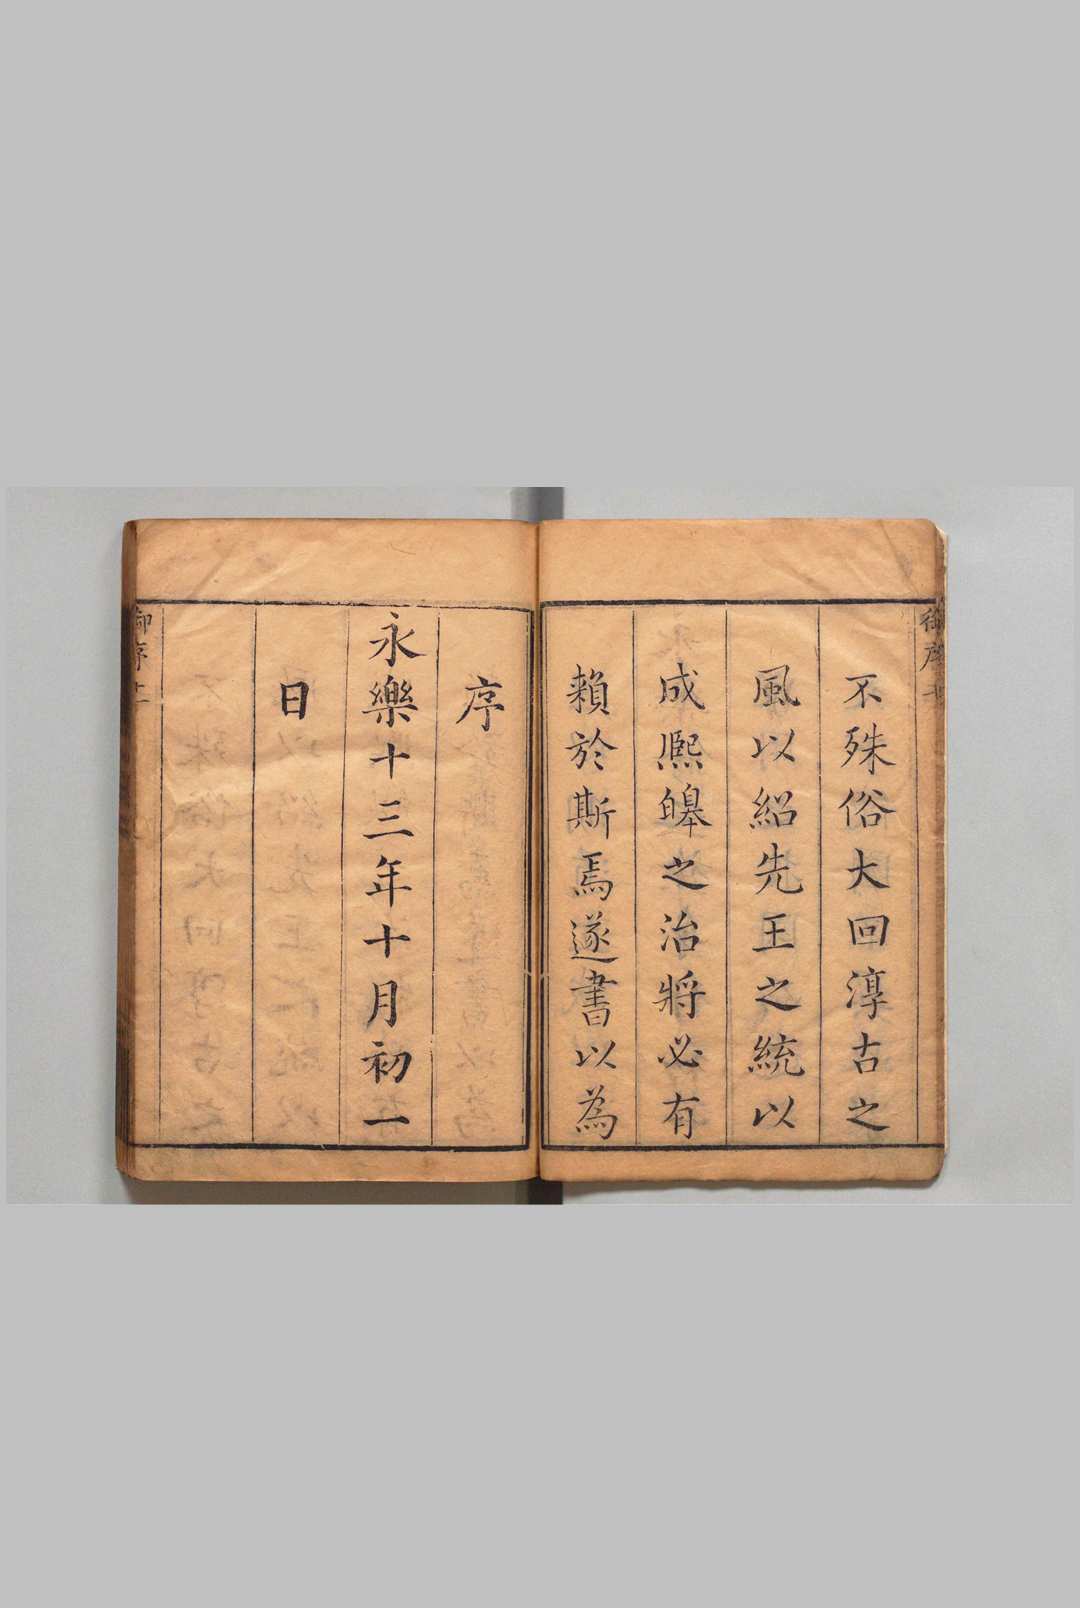 不殊俗大回淳古之
風以紹先王之統以
成熈皞之治將必有
賴於斯焉遂書以為
序
永樂十三年十月初一
日
御序